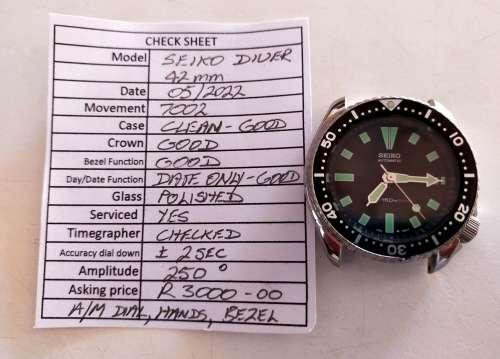 CHECK SHEET
Model SEIKO DIVER
42mm
Date 05/2022
Movement 7002
Case CLEAN-GOOD
Crown GOOD
Bezel Function GOOD
Day/Date Function DATE ONLY-GOOD
Glass POLISHED
Serviced YES
Timegrapher CHECKED
Accuracy dial down ± 2SEC
Amplitude 250°
Asking price R3000-00
A/M DIAL, HANDS, BEZEL
50
10
20
30
40
SEIKO
AUTOMATIC